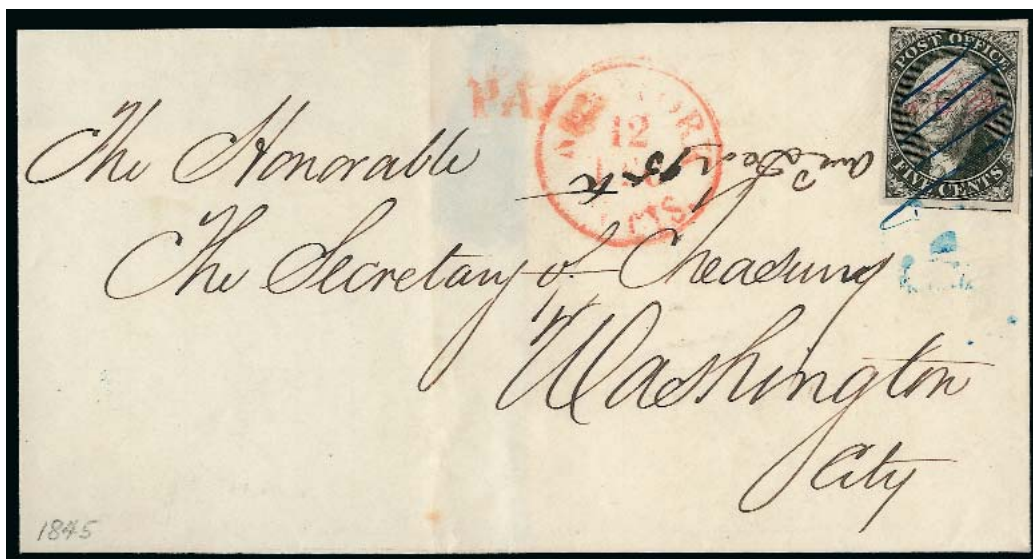 POST OFFICE
FIVE CENTS
PAID
NEW YORK
12
DEC
5 CTS.
The Honorable
The Secretary of Treasury
Washington
City
1845